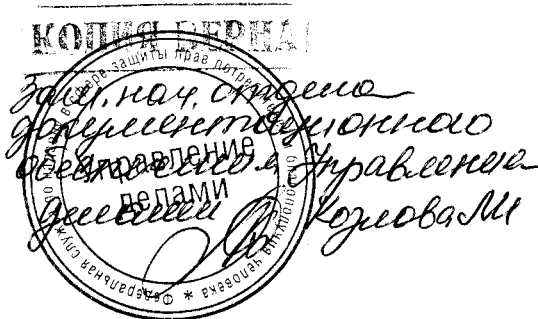 КОПИЯ ВЕРНА
Зам. нач. отдела
документационного
обеспечения Управления
делами Козлова М
Федеральная служба по надзору в сфере защиты прав потребителей и благополучия человека *
Управление
делами